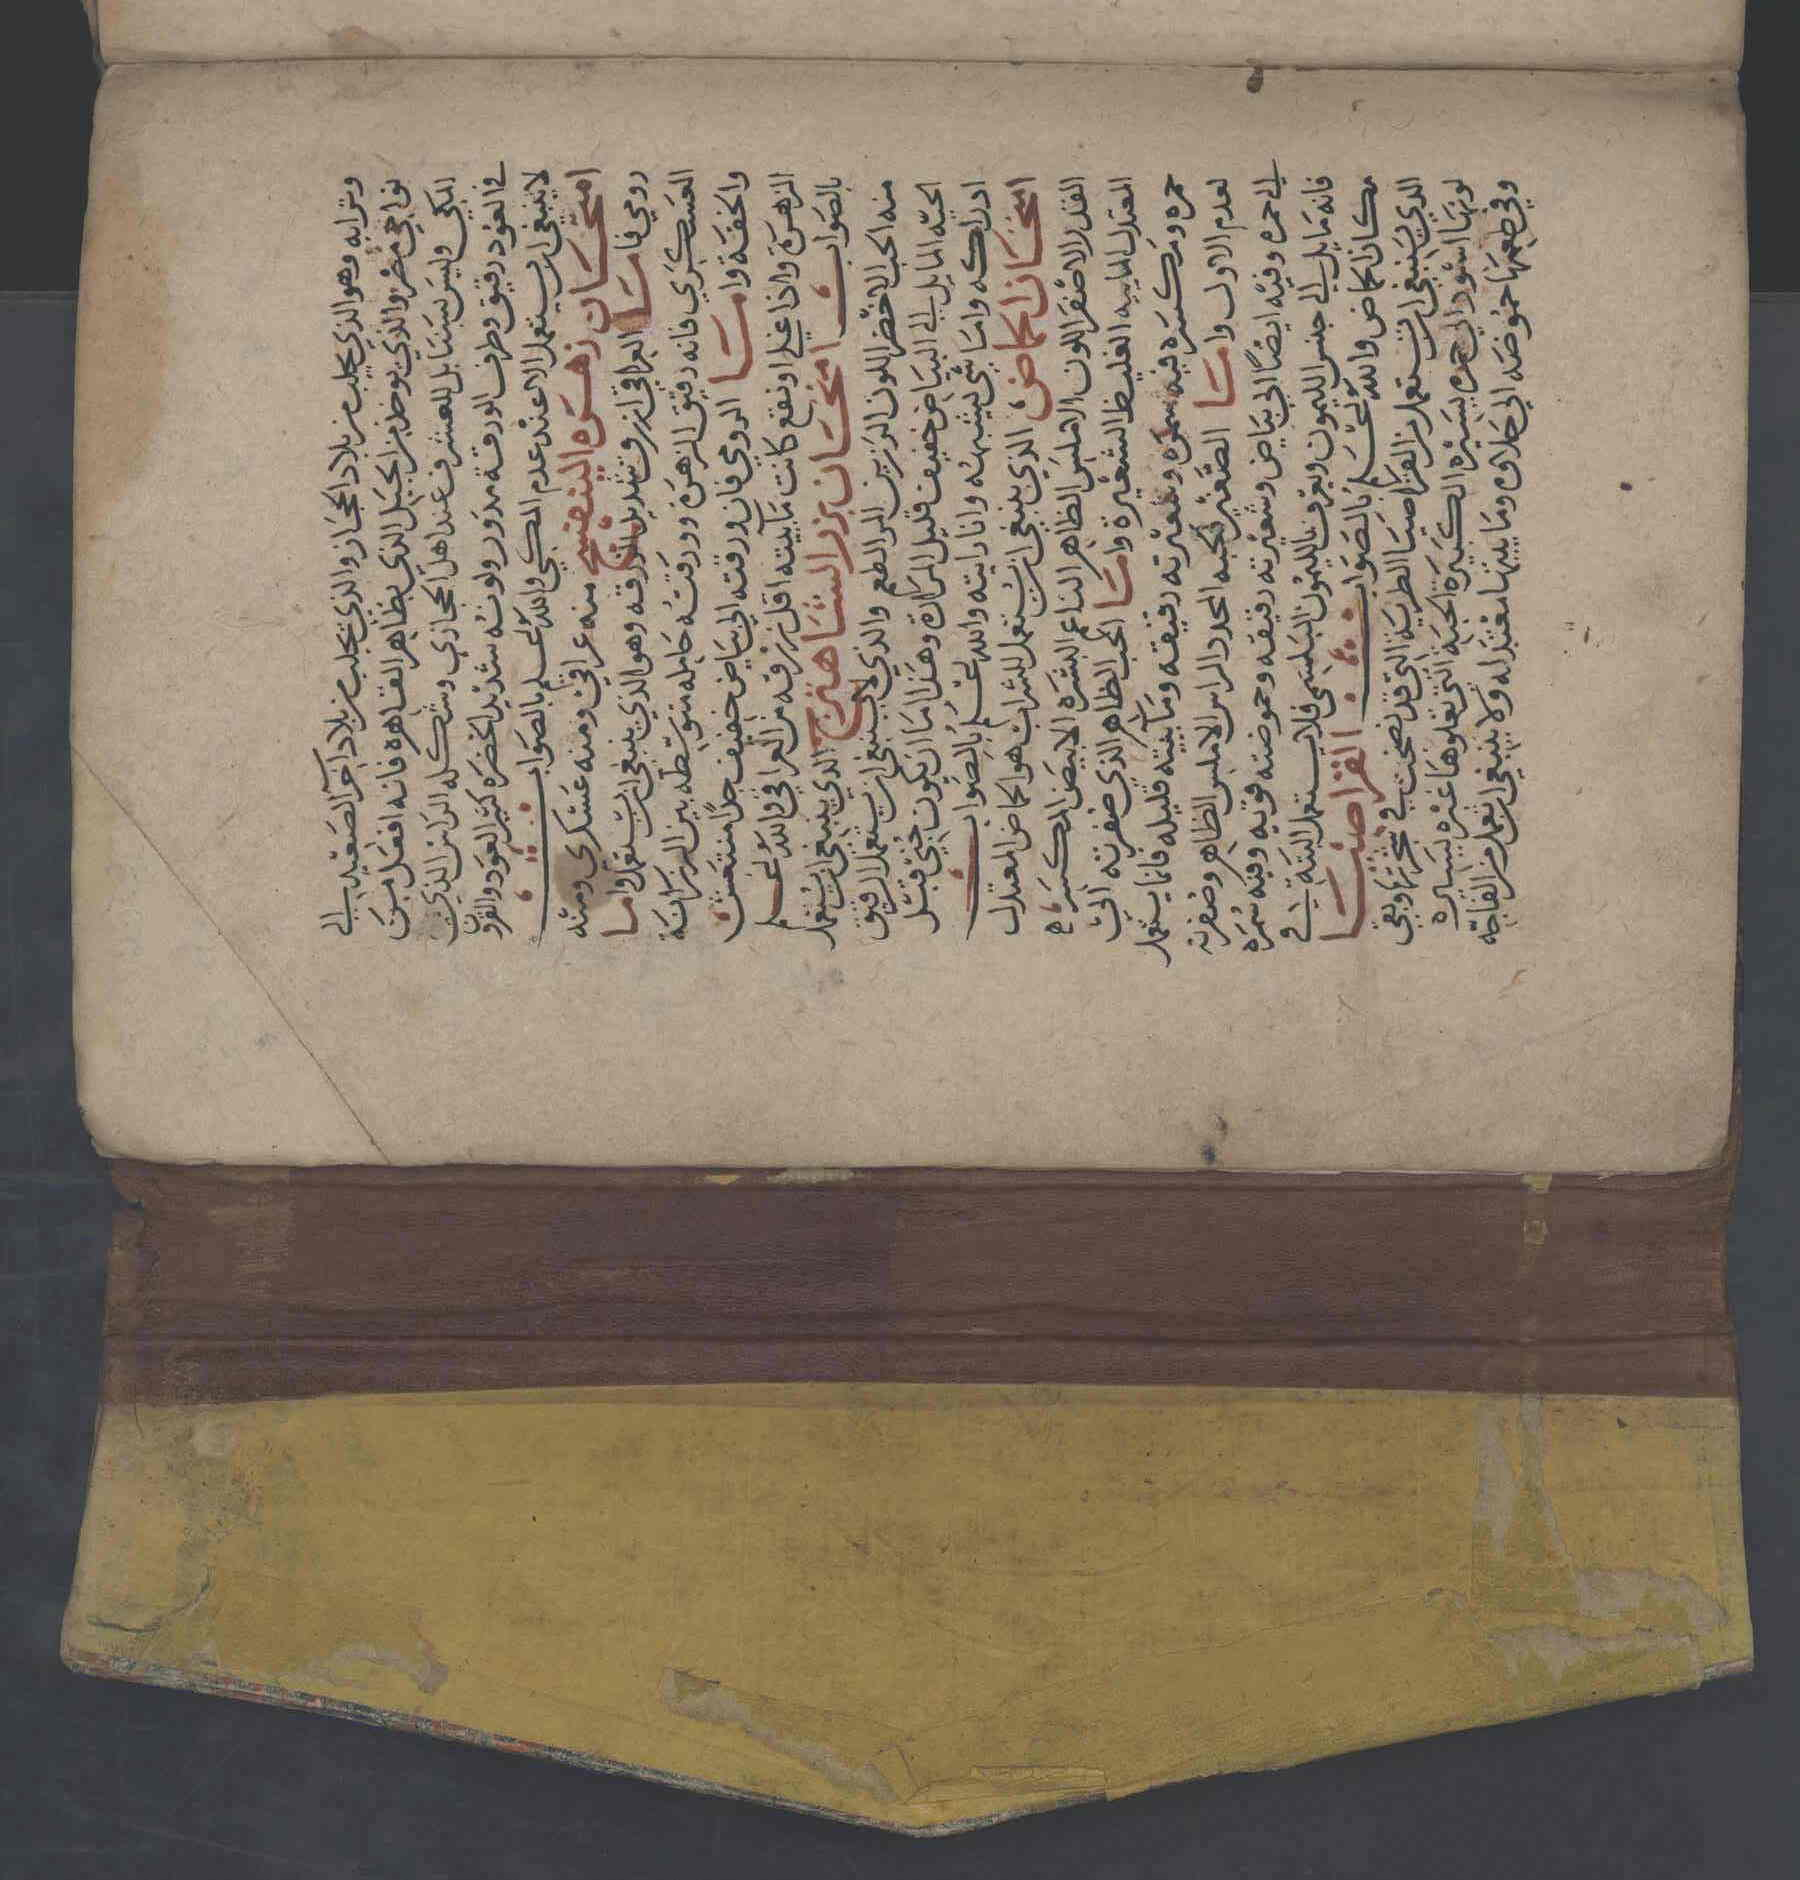 وترابه وهو الذي يجلب من بلاد الحجاز والذي يجلب من بلاد آخر الصعيد الي
نواحي مصر والذي يوخذ من الجبل الذي بظاهر القاهرة فانه افضل من
المكي وليس سنابل للعشرف عند اهل الحجازي وشكله الرازي الذي
في العود دقيق وطرف الورقة مدور ولونه شديد الخضرة كثير العود والقرون
لا ينبغي ان يستعمل الا عند عدم المكي والله اعلم بالصواب
امتحان زهرة البنفسج منه عراقي ومنه عسكري ومنه
رومي فاما العراقي ازرق شديد الزرقه وهو الذي ينبغي ان يستعمل واما
العسكري فانه دقيق الزهرة وورقته حامله متوسطه بين الرزانة
والخفة واما الرومي فان ورقته الي بياض خفيف جدا منتفش
الزهرة واذا غلي او نقع كانت مآئيته اقل زرقه من العراقي والله اعلم
بالصواب امتحان بزر الشاهترج الذي ينبغي ان يستعمل
منه الحب الاخضر اللون الرزين المر الطعم والذي لا ينبغي ان يستعمل الرقيق
الحبه المايل الي البياض خفيف قليل المرارة وهذا اما ان يكون جني قبل
ادراكه واما شي يشبهه وانا رايته والله اعلم بالصواب
امتحان الحماض الذي ينبغي ان يستعمل للشراب هو الحماض المعتدل
القدر الاصفر اللون الاملس الظاهر الناعم البشرة الابيض المكسر
المعتدل المايه الغليظ الشعيرة واما الحب الظاهر الذي صفرته الي
حمره ومكسره فيه سمرة وشعيرته رقيقه ومآئيته قليله فانما يستعمل
لعدم الاول واما الصغير الحبه المحدد الراس الاملس الظاهر وصفرته
الي حمره وفيه ايضا الي بياض وشعيرته رقيقه وحموضته قويه وفيه سمرة
فانه مايل الي جنس الليمون ويعرف بالليمون البلسمي فلا يستعمل البتة في
مكان الحماض والله اعلم بالصواب القراصيا
الذي ينبغي ان يستعمل من القراصيا الطرية التي قد نضجت في شجرتها وبقي
لونها اسود الي حمره يسيره الكبيرة الحبة التي تعلوها غبره يساره
وفي طعمها حموضه الي حلاوه وما بينهما معتدله ولا ينبغي ان يستعمل من الفاجة